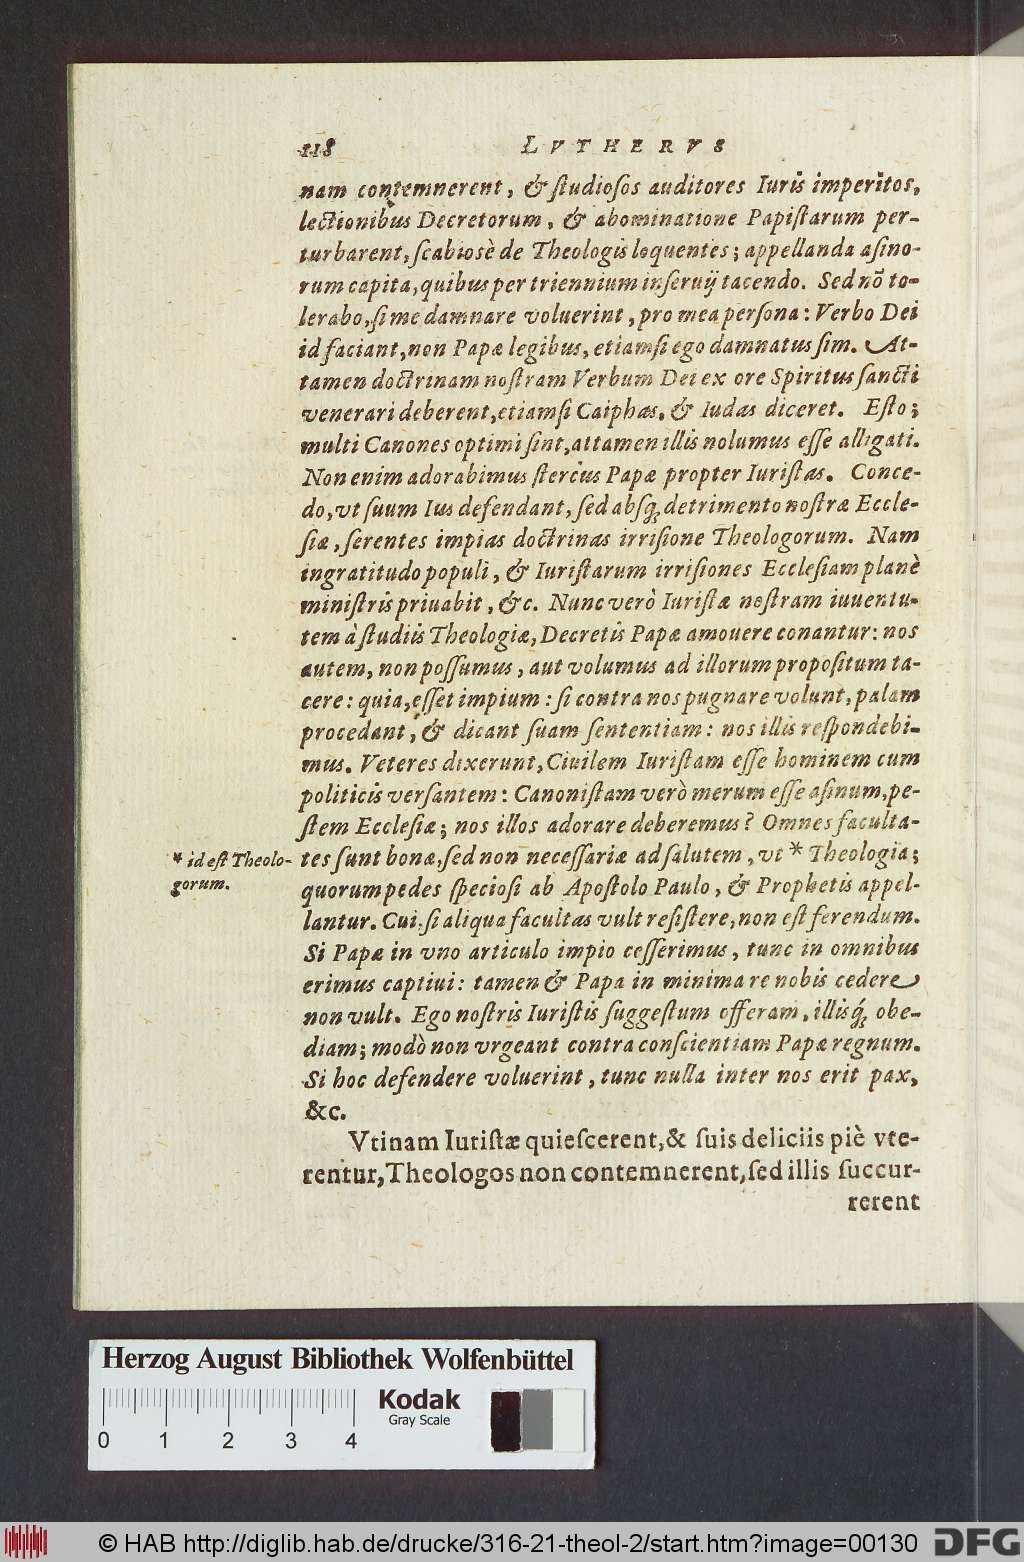 118 LVTHERVS
nam contemnerent, & ſtudioſos auditores Iuris imperitos,
lectionibus Decretorum, & abominatione Papiſtarum per-
turbarent, ſcabiosè de Theologis loquentes; appellanda aſino-
rum capita, quibus per triennium inſeruij tacendo. Sed nō to-
lerabo, ſi me damnare voluerint, pro mea perſona: Verbo Dei
id faciant, non Papæ legibus, etiamſi ego damnatus ſim. At-
tamen doctrinam noſtram Verbum Dei ex ore Spiritus ſancti
venerari deberent, etiamſi Caiphas, & Iudas diceret. Eſto;
multi Canones optimi ſint, attamen illis nolumus eſſe alligati.
Non enim adorabimus ſtercus Papæ propter Iuriſtas. Conce-
do, vt ſuum Ius defendant, ſed abſq; detrimento noſtræ Eccle-
ſiæ, ſerentes impias doctrinas irriſione Theologorum. Nam
ingratitudo populi, & Iuriſtarum irriſiones Eccleſiam planè
miniſtris priuabit, &c. Nunc verò Iuriſtæ noſtram iuuentu-
tem à ſtudiis Theologiæ, Decretis Papæ amouere conantur: nos
autem, non poſſumus, aut volumus ad illorum propoſitum ta-
cere: quia, eſſet impium: ſi contra nos pugnare volunt, palam
procedant, & dicant ſuam ſententiam: nos illis reſpondebi-
mus. Veteres dixerunt, Ciuilem Iuriſtam eſſe hominem cum
politicis verſantem: Canoniſtam verò merum eſſe aſinum, pe-
ſtem Eccleſiæ; nos illos adorare deberemus? Omnes faculta-
tes ſunt bonæ, ſed non neceſſariæ ad ſalutem, vt * Theologia;
* id eſt Theolo-
gorum.
quorum pedes ſpecioſi ab Apoſtolo Paulo, & Prophetis appel-
lantur. Cui, ſi aliqua facultas vult reſiſtere, non eſt ferendum.
Si Papæ in vno articulo impio ceſſerimus, tunc in omnibus
erimus captiui: tamen & Papa in minima re nobis cedere
non vult. Ego noſtris Iuriſtis ſuggeſtum offeram, illisq́; obe-
diam; modò non vrgeant contra conſcientiam Papæ regnum.
Si hoc defendere voluerint, tunc nulla inter nos erit pax,
&c.
Vtinam Iuriſtæ quieſcerent, & ſuis deliciis piè vte-
rentur, Theologos non contemnerent, ſed illis ſuccur-
rerent
Herzog August Bibliothek Wolfenbüttel
Kodak
Gray Scale
0 1 2 3 4
© HAB http://diglib.hab.de/drucke/316-21-theol-2/start.htm?image=00130 DFG